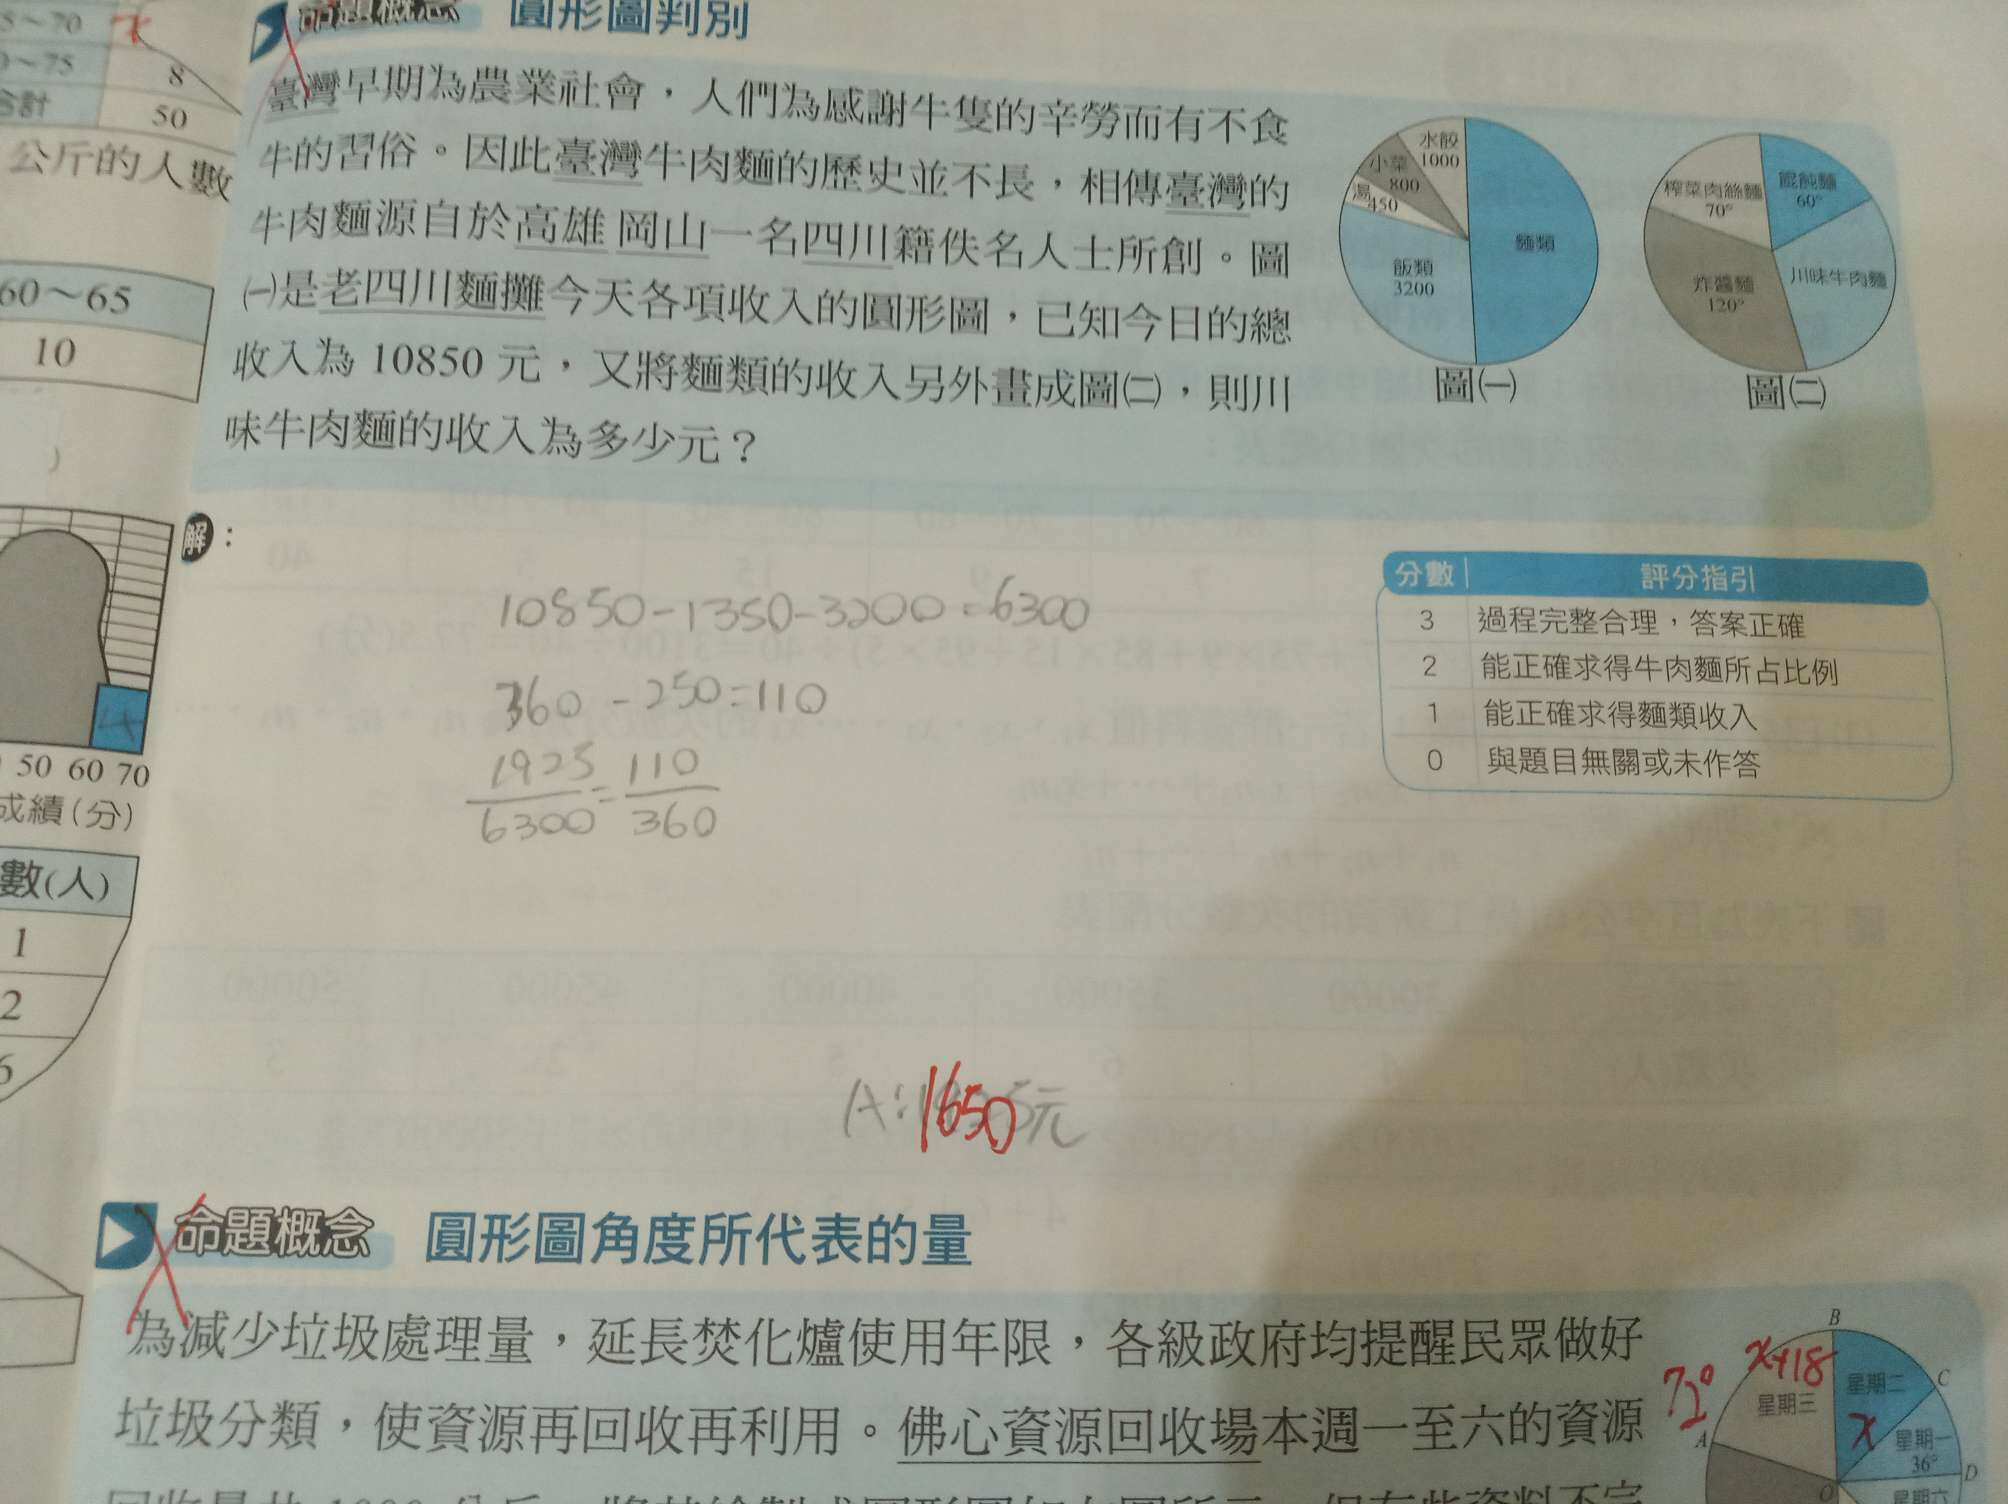 命題概念 圓形圖判別
臺灣早期為農業社會，人們為感謝牛隻的辛勞而有不食
牛的習俗。因此臺灣牛肉麵的歷史並不長，相傳臺灣的
牛肉麵源自於高雄岡山一名四川籍佚名人士所創。圖
㈠是老四川麵攤今天各項收入的圓形圖，已知今日的總
收入為 10850 元，又將麵類的收入另外畫成圖㈡，則川
味牛肉麵的收入為多少元？
水餃
1000
小菜
800
湯
450
飯類
3200
麵類
圖㈠
榨菜肉絲麵
70°
餛飩麵
60°
炸醬麵
120°
川味牛肉麵
圖㈡
解：
10850-1350-3200=6300
360-250=110
1925/6300=110/360
A:
1650
元
分數 評分指引
3 過程完整合理，答案正確
2 能正確求得牛肉麵所占比例
1 能正確求得麵類收入
0 與題目無關或未作答
命題概念 圓形圖角度所代表的量
為減少垃圾處理量，延長焚化爐使用年限，各級政府均提醒民眾做好
垃圾分類，使資源再回收再利用。佛心資源回收場本週一至六的資源
B
x+18
星期三
72°
A
星期二
x
C
星期一
36°
D
O
星期六
5~70
x
~75
8
合計
50
公斤的人數
60～65
10
50 60 70
成績(分)
數(人)
1
2